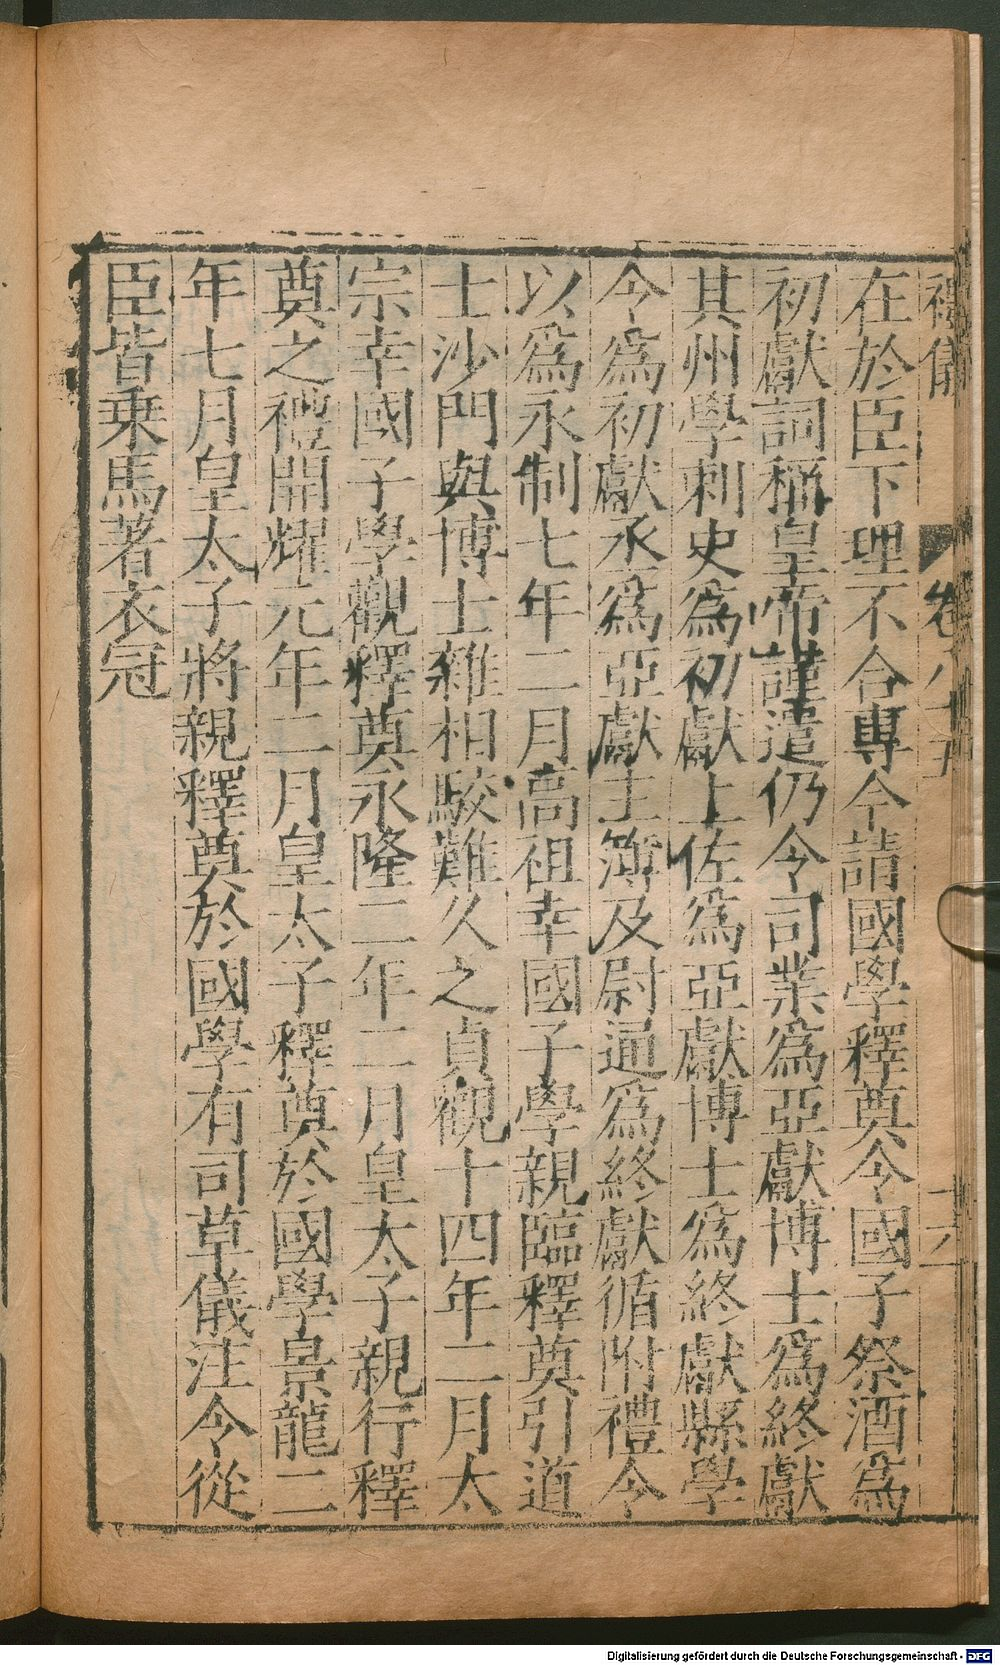 在於臣下理不合專今請國學釋奠令國子祭酒為
初獻詞稱皇帝謹遣仍令司業為亞獻博士為終獻
其州學刺史為初獻上佐為亞獻博士為終獻縣學
令為初獻丞為亞獻主簿及尉通為終獻循附禮令
以為永制七年二月高祖幸國子學親臨釋奠引道
士沙門與博士雜相駮難久之貞觀十四年二月太
宗幸國子學觀釋奠永隆二年二月皇太子親行釋
奠之禮開耀元年二月皇太子釋奠於國學景龍二
年七月皇太子將親釋奠於國學有司草儀注令從
臣皆乗馬著衣冠
Digitalisierung gefördert durch die Deutsche Forschungsgemeinschaft - DFG